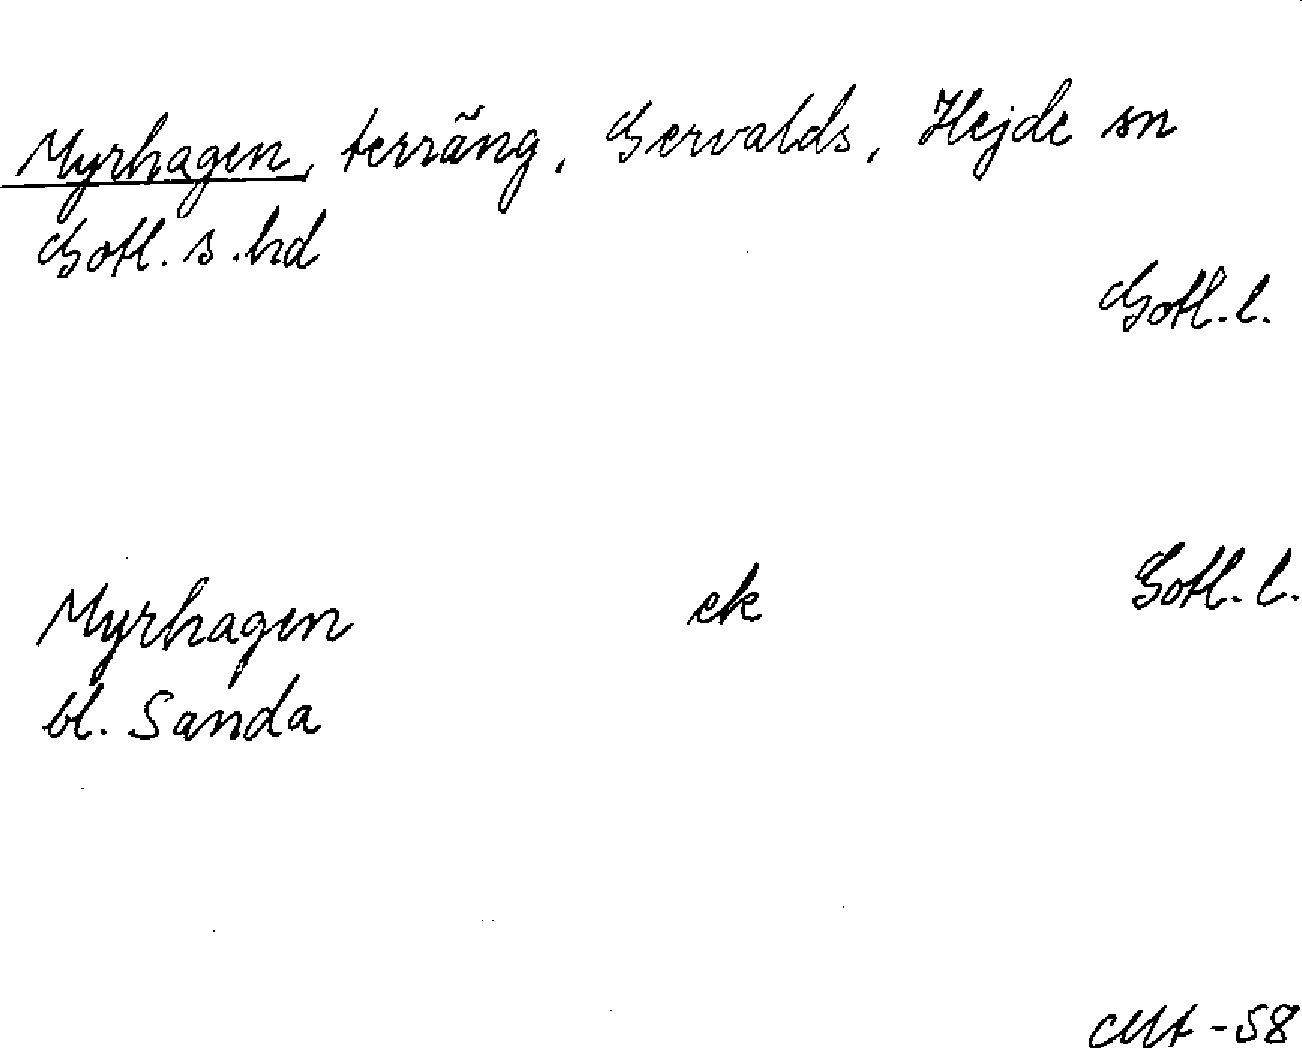 Myrhagen, terräng, Gervalds, Hejde sn
Gotl. s. hd
Gotl. l.
Myrhagen ek Gotl. l.
bl. Sanda
-58